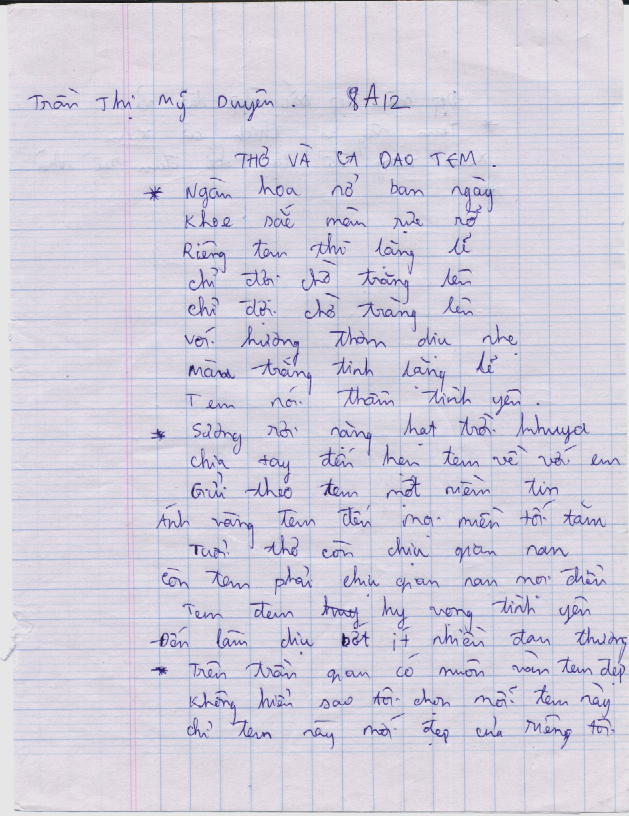 Trần Thị Mỹ Duyên. 8A12
THƠ VÀ CA DAO TEM.
* Ngàn hoa nở ban ngày
Khoe sắc màu rực rỡ
Riêng tem thì lặng lẽ
chỉ đợi chờ trăng lên
chỉ đợi chờ trăng lên
với hương thơm dịu nhẹ
Màu trắng tinh lặng lẽ
Tem nói thầm tình yên.
* Sương rơi nặng hạt trời khuya
chia tay đến hẹn tem về với em
Gửi theo tem một niềm tin
Ánh vàng tem đến mọi miền tối tăm
Tuổi thơ còn chịu gian nan
còn tem phải chịu gian nan mọi điều
Tem đem hy vọng tình yên
Đến làm dịu bớt ít nhiều đau thương
* Trên trần gian có muôn vàn tem đẹp
Không hiểu sao tôi chọn mỗi tem này
chỉ tem này mới đẹp của riêng tôi.